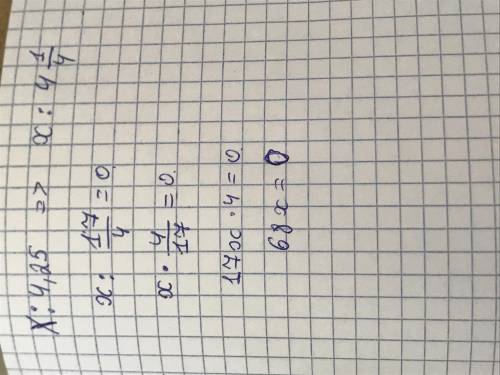 X: 4,25 => x: 4 1/4
x: 17/4 = 0.
x · 4/17 = 0.
17x · 4 = 0.
68x = 0